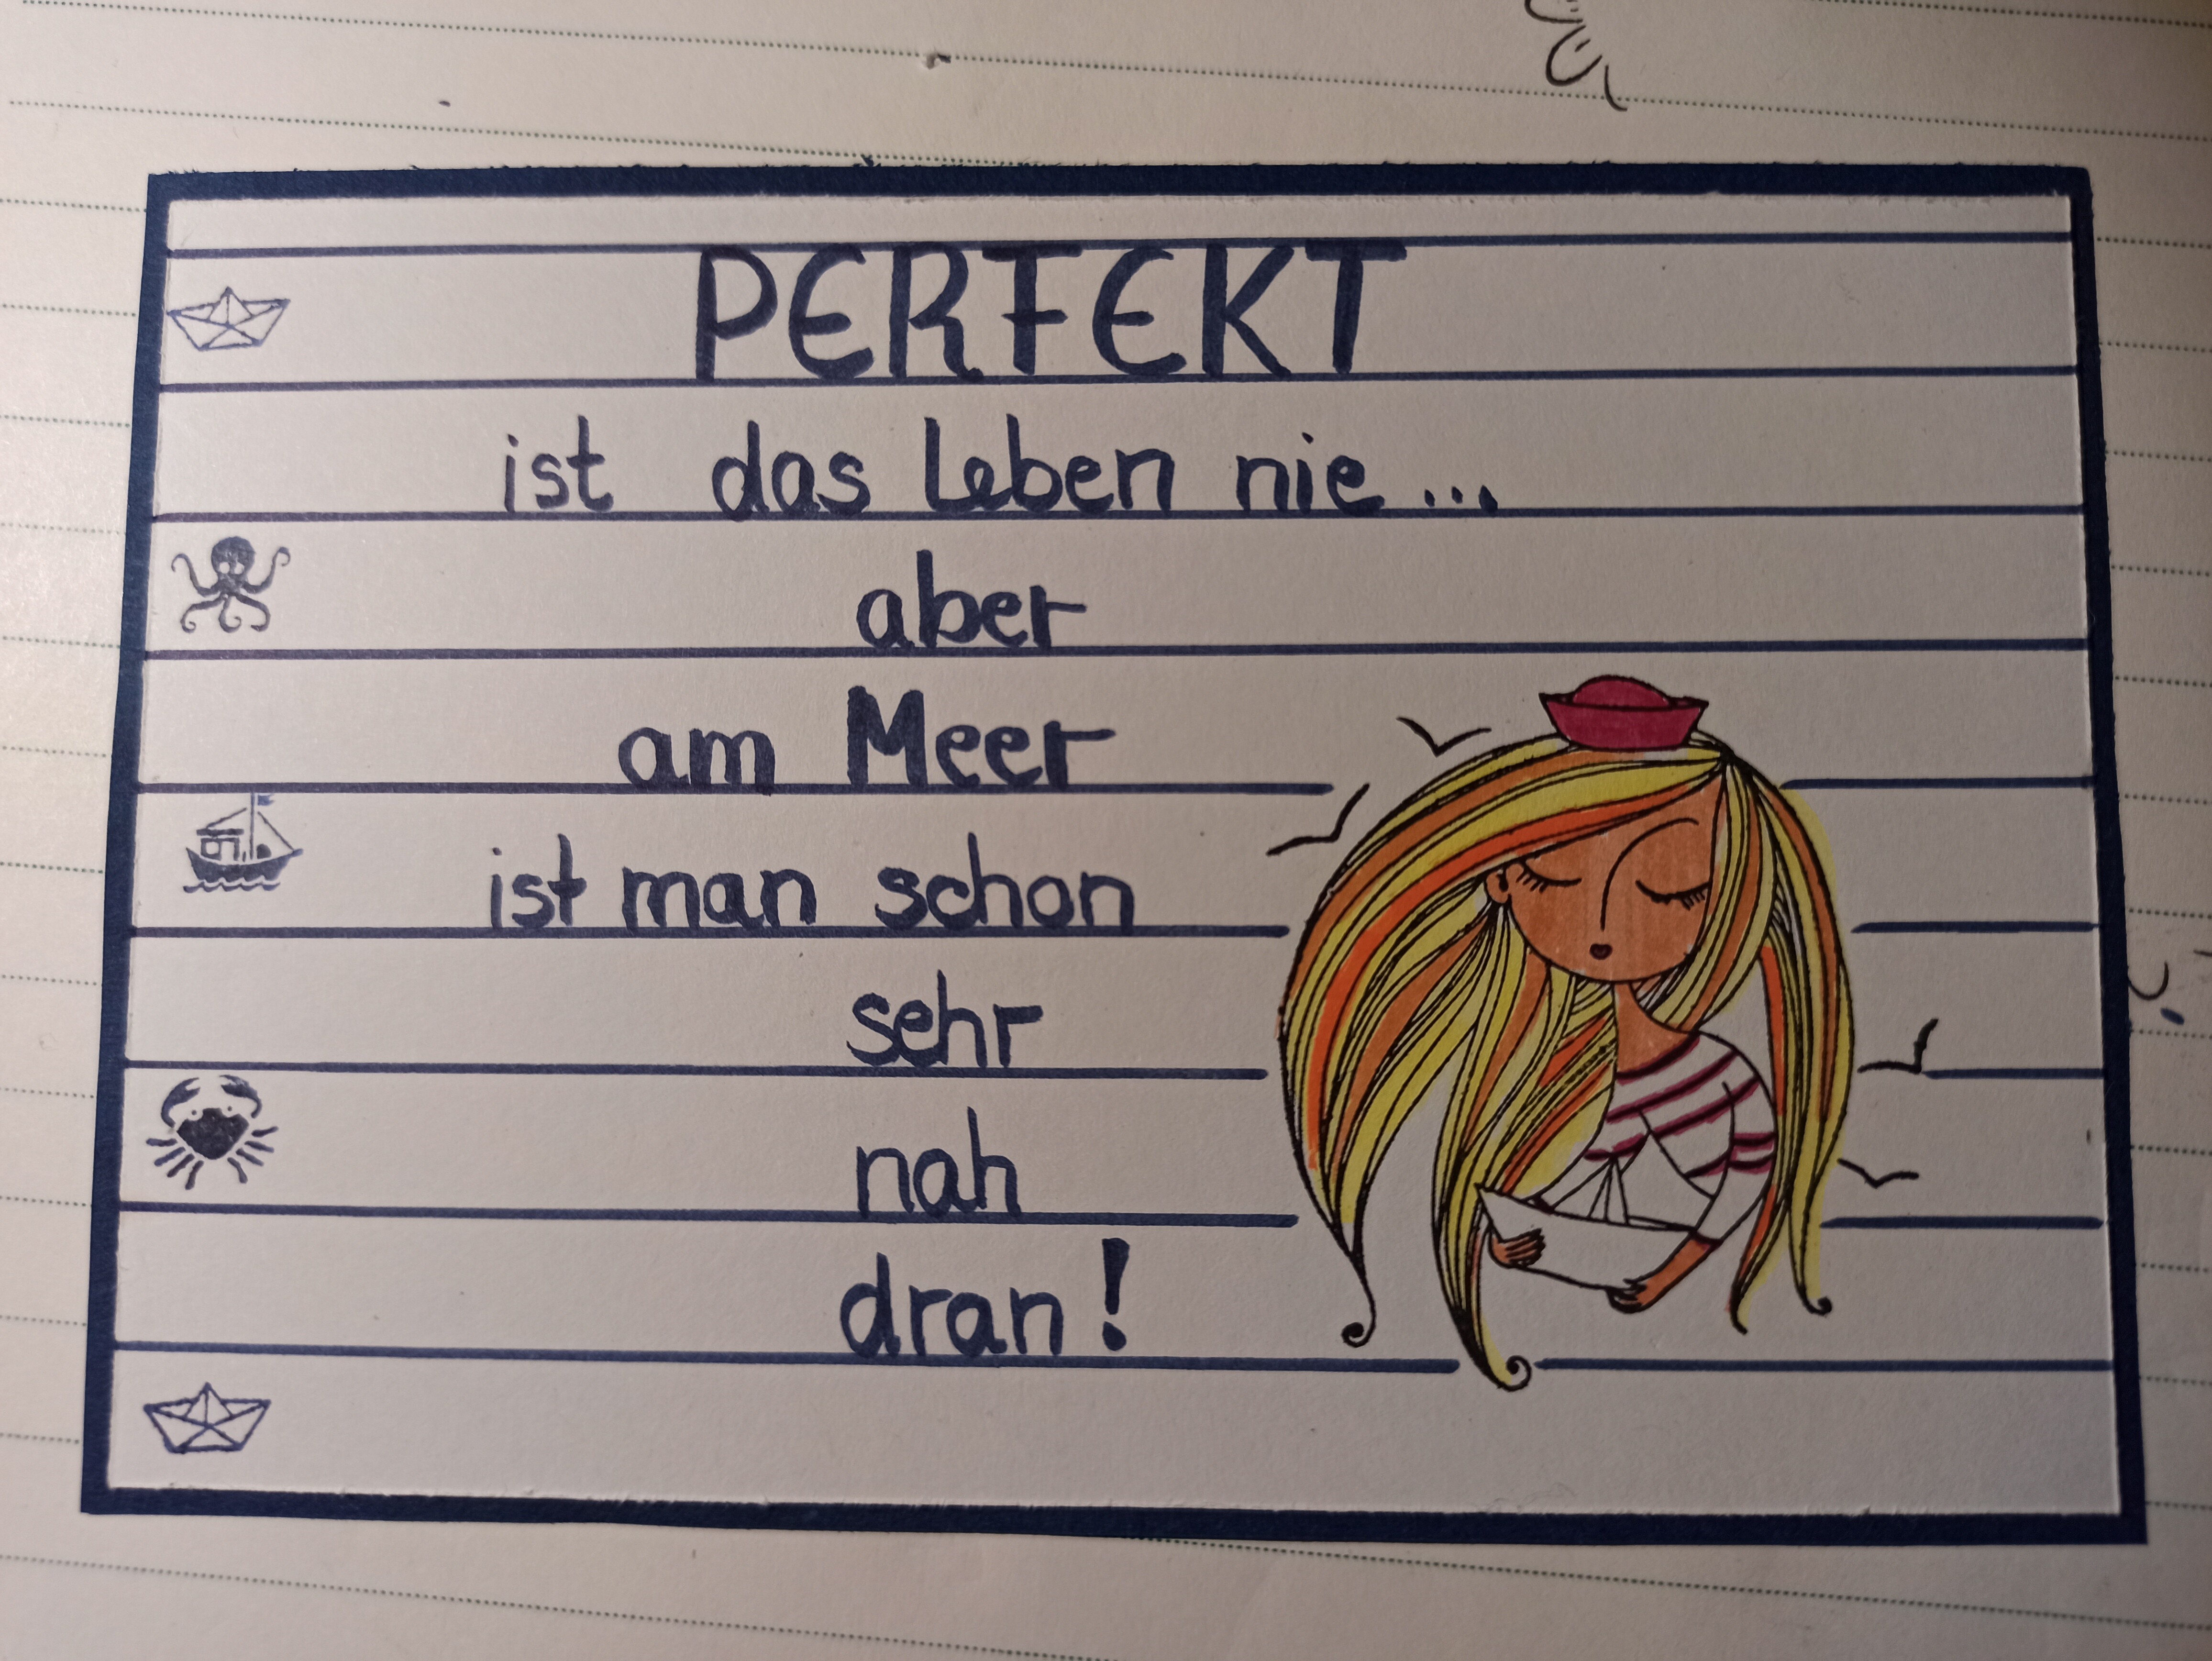 PERFEKT
ist das Leben nie...
aber
am Meer
ist man schon
sehr
nah
dran!